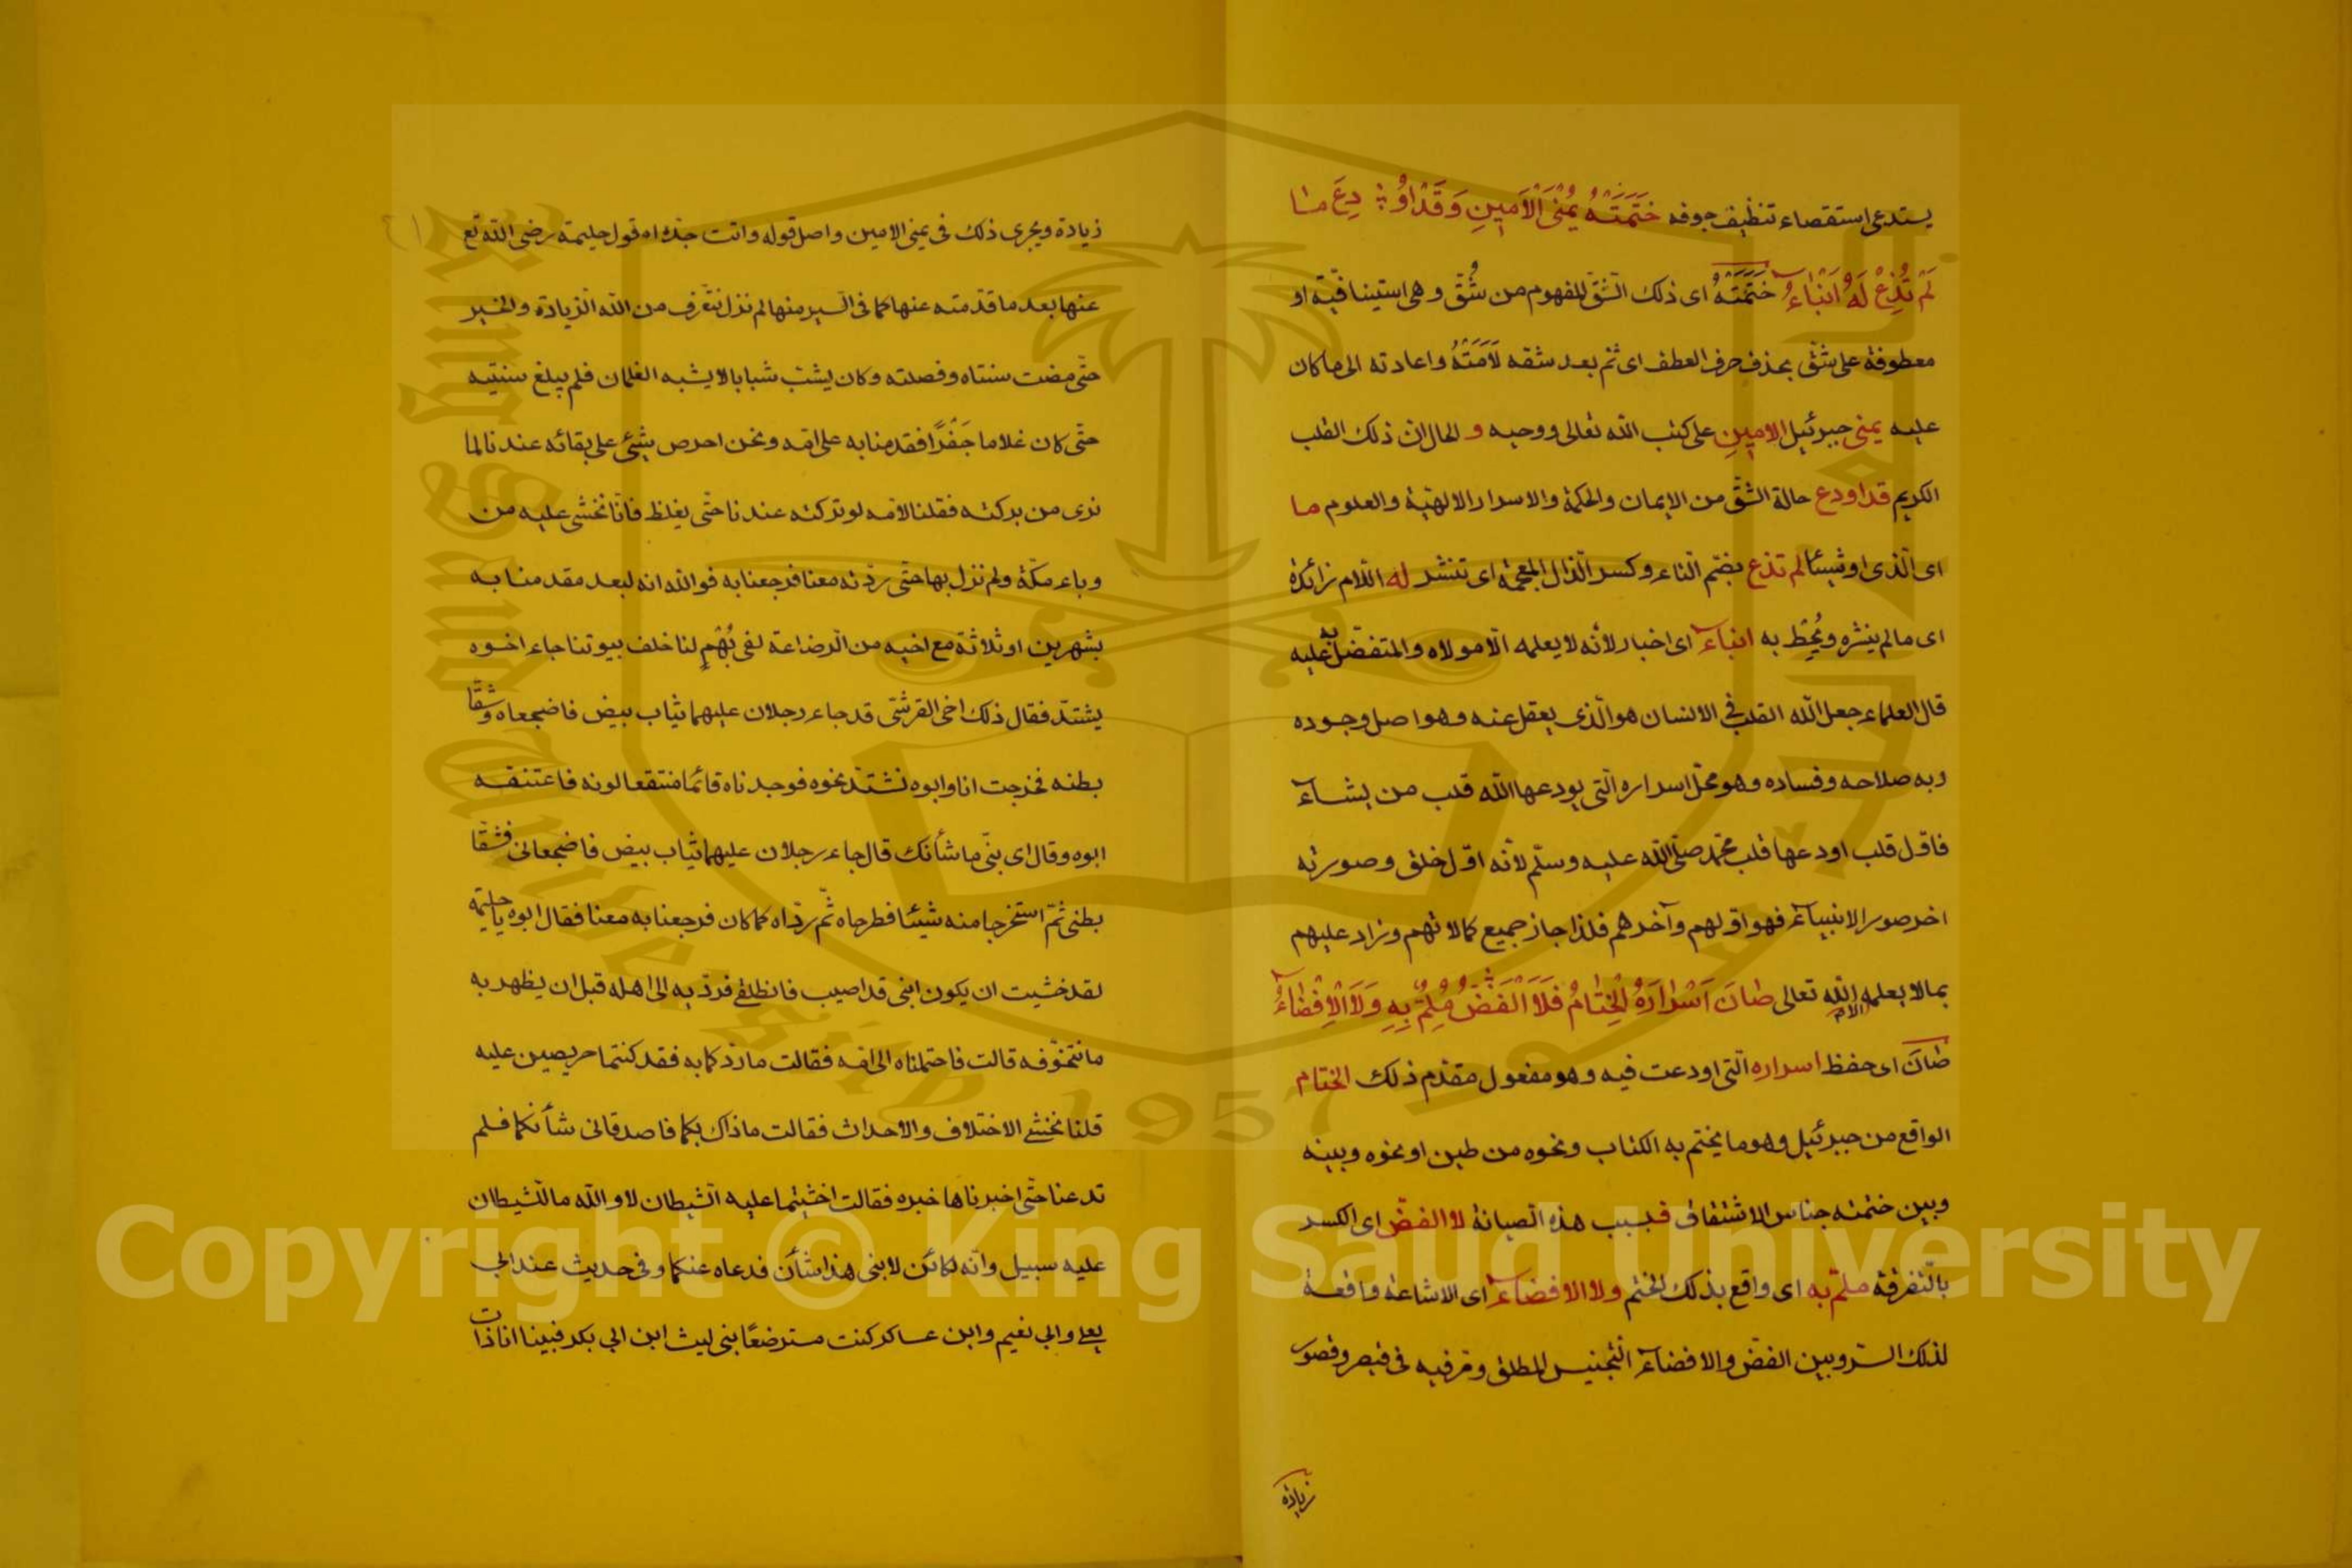 يستدعى استقصاء تنظيف جوفه خَتَمَتْهُ يُمْنَى الْاَمِينِ وَقَدْ اوُ دِعَ مَا
لَمْ تُذِعْ لَهُ اَنْبَاءُ خَتَمَتْهُ اى ذلك الشّقّ المفهوم من شُقَّ وهى استينافيّة او
معطوفة على شُقّ بحذف حرف العطف اى ثم بعد شقه لَامَتْهُ واعادته الى ما كان
عليه يمنى جبرئيل الامين على كتب الله تعالى ووحيه و الحال انّ ذلك القلب
الكريم قد اودع حالة الشّقّ من الايمان والحكمة والاسرار الالهيّة والعلوم ما
اى الّذى او شيئا لم تذع بضمّ التاء وكسر الذّال المعجمة اى تنشر له اللّام زائدة
اى ما لم ينشره ويُحِط به انباء اى اخبار لانّه لا يعلمه الّا مولاه والمتفضّل به عليه
قال العلماء جعل الله القلب فى الانسان هو الّذى يعقل عنه وهو اصل وجوده
وبه صلاحه وفساده وهو محلّ اسراره الّتى يودعها الله قلب من يشاء
فاوّل قلب اودعها قلب محمّد صلّى الله عليه وسلّم لانّه اوّل خلق وصورته
اخر صور الانبياء فهو اوّلهم وآخرهم فلذا حاز جميع كمالاتهم وزاد عليهم
بما لا يعلمه الا الله تعالى صَانَ اَسْرَارَهُ الْخِتَامُ فَلَا الْفَضُّ مُلِمٌّ بِهِ وَلَا الْاِفْضَاءُ
صَانَ اى حفظ اسراره الّتى اودعت فيه وهو مفعول مقدّم ذلك الختام
الواقع من جبرئيل وهو ما يختم به الكتاب ونحوه من طين او نحوه وبينه
وبين ختمته جناس الاشتقاق فبسبب هذه الصيانة لا الفضّ اى الكسر
بالتّفرقة ملمّ به اى واقع بذلك الختم ولا الافضاء اى الاشاعة واقعة
لذلك السّرّ وبين الفضّ والافضاء التّجنيس المطلق ومرّ فيه فى قيصر وقصور
زيادة
زيادة ويجرى ذلك فى يمنى الامين واصل قوله واتت جدّه اه قول حليمة رضى الله تع
عنها بعد ما قدّمته عنها كما فى السّير منها لم نزل نتعّرف من الله الزّيادة والخير
حتّى مضت سنتاه وفصلته وكان يشبّ شبابا لا يشبه الغلمان فلم يبلغ سنتيه
حتّى كان غلاما جَفْرًا فقدمنا به على امّه ونحن احرص شيئ على بقائه عندنا لما
نرى من بركته فقلنا لامّه لو تركته عندنا حتّى يغلظ فانّا نخشى عليه من
وباء مكّة ولم نزل بها حتّى ردّته معنا فرجعنا به فوالله انه لبعد مقدمنا به
بشهرين او ثلاثة مع اخيه من الرضاعة لفى بُهْمٍ لنا خلف بيوتنا جاء اخوه
يشتدّ فقال ذلك اخى القرشىّ قد جاء رجلان عليهما ثياب بيض فاضجعاه وشقّا
بطنه فخرجت انا وابوه نشتدّ نحوه فوجدناه قائما منتقعا لونه فاعتنقه
ابوه وقال اى بنّى ما شأنك قال جاء رجلان عليهما ثياب بيض فاضجعانى فشقّا
بطنى ثمّ استخرجا منه شيئا فطرحاه ثمّ ردّاه كما كان فرجعنا به معنا فقال ابوه يا حليمة
لقد خشيت ان يكون ابنى قد اصيب فانطلقى فردّ به الى اهله قبل ان يظهر به
ما نتخوّفه قالت فاحتملناه الى امّه فقالت ما ردّكما به فقد كنتما حريصين عليه
قلنا نخشى الاختلاف والاحداث فقالت ما ذاك بكما فاصدقانى شأنكما فلم
تدعنا حتّى اخبرناها خبره فقالت اخشيتما عليه الشيطان لا والله ما للشيطان
عليه سبيل وانّه لكائن لابنى هذا شأن فدعاه عنكما وفى حديث عند ابى
يعلى وابى نعيم وابن عساكر كنت مسترضعًا بنى ليث ابن ابى بكر فبينا انا ذات
King Saud University
1957
Copyright © King Saud University